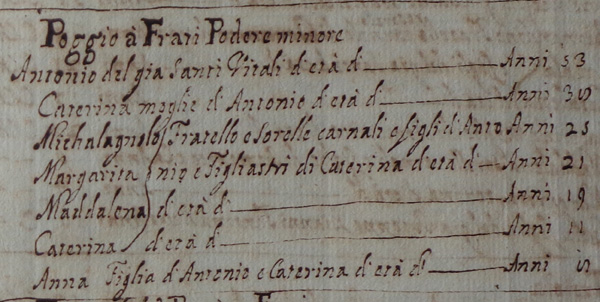 Poggio à Frati Podere minore
Antonio del gia Santi Vitali d'età d Anni 53
Caterina moglie d'Antonio d'età d Anni 35
Michalagnolo Fratello e sorelle carnali e figli d'Anto Anni 25
Margarita nio e Figliastri di Caterina d'età d Anni 21
Maddalena d'età d Anni 19
Caterina d'età d Anni 11
Anna Figlia d'Antonio e Caterina d'età d Anni